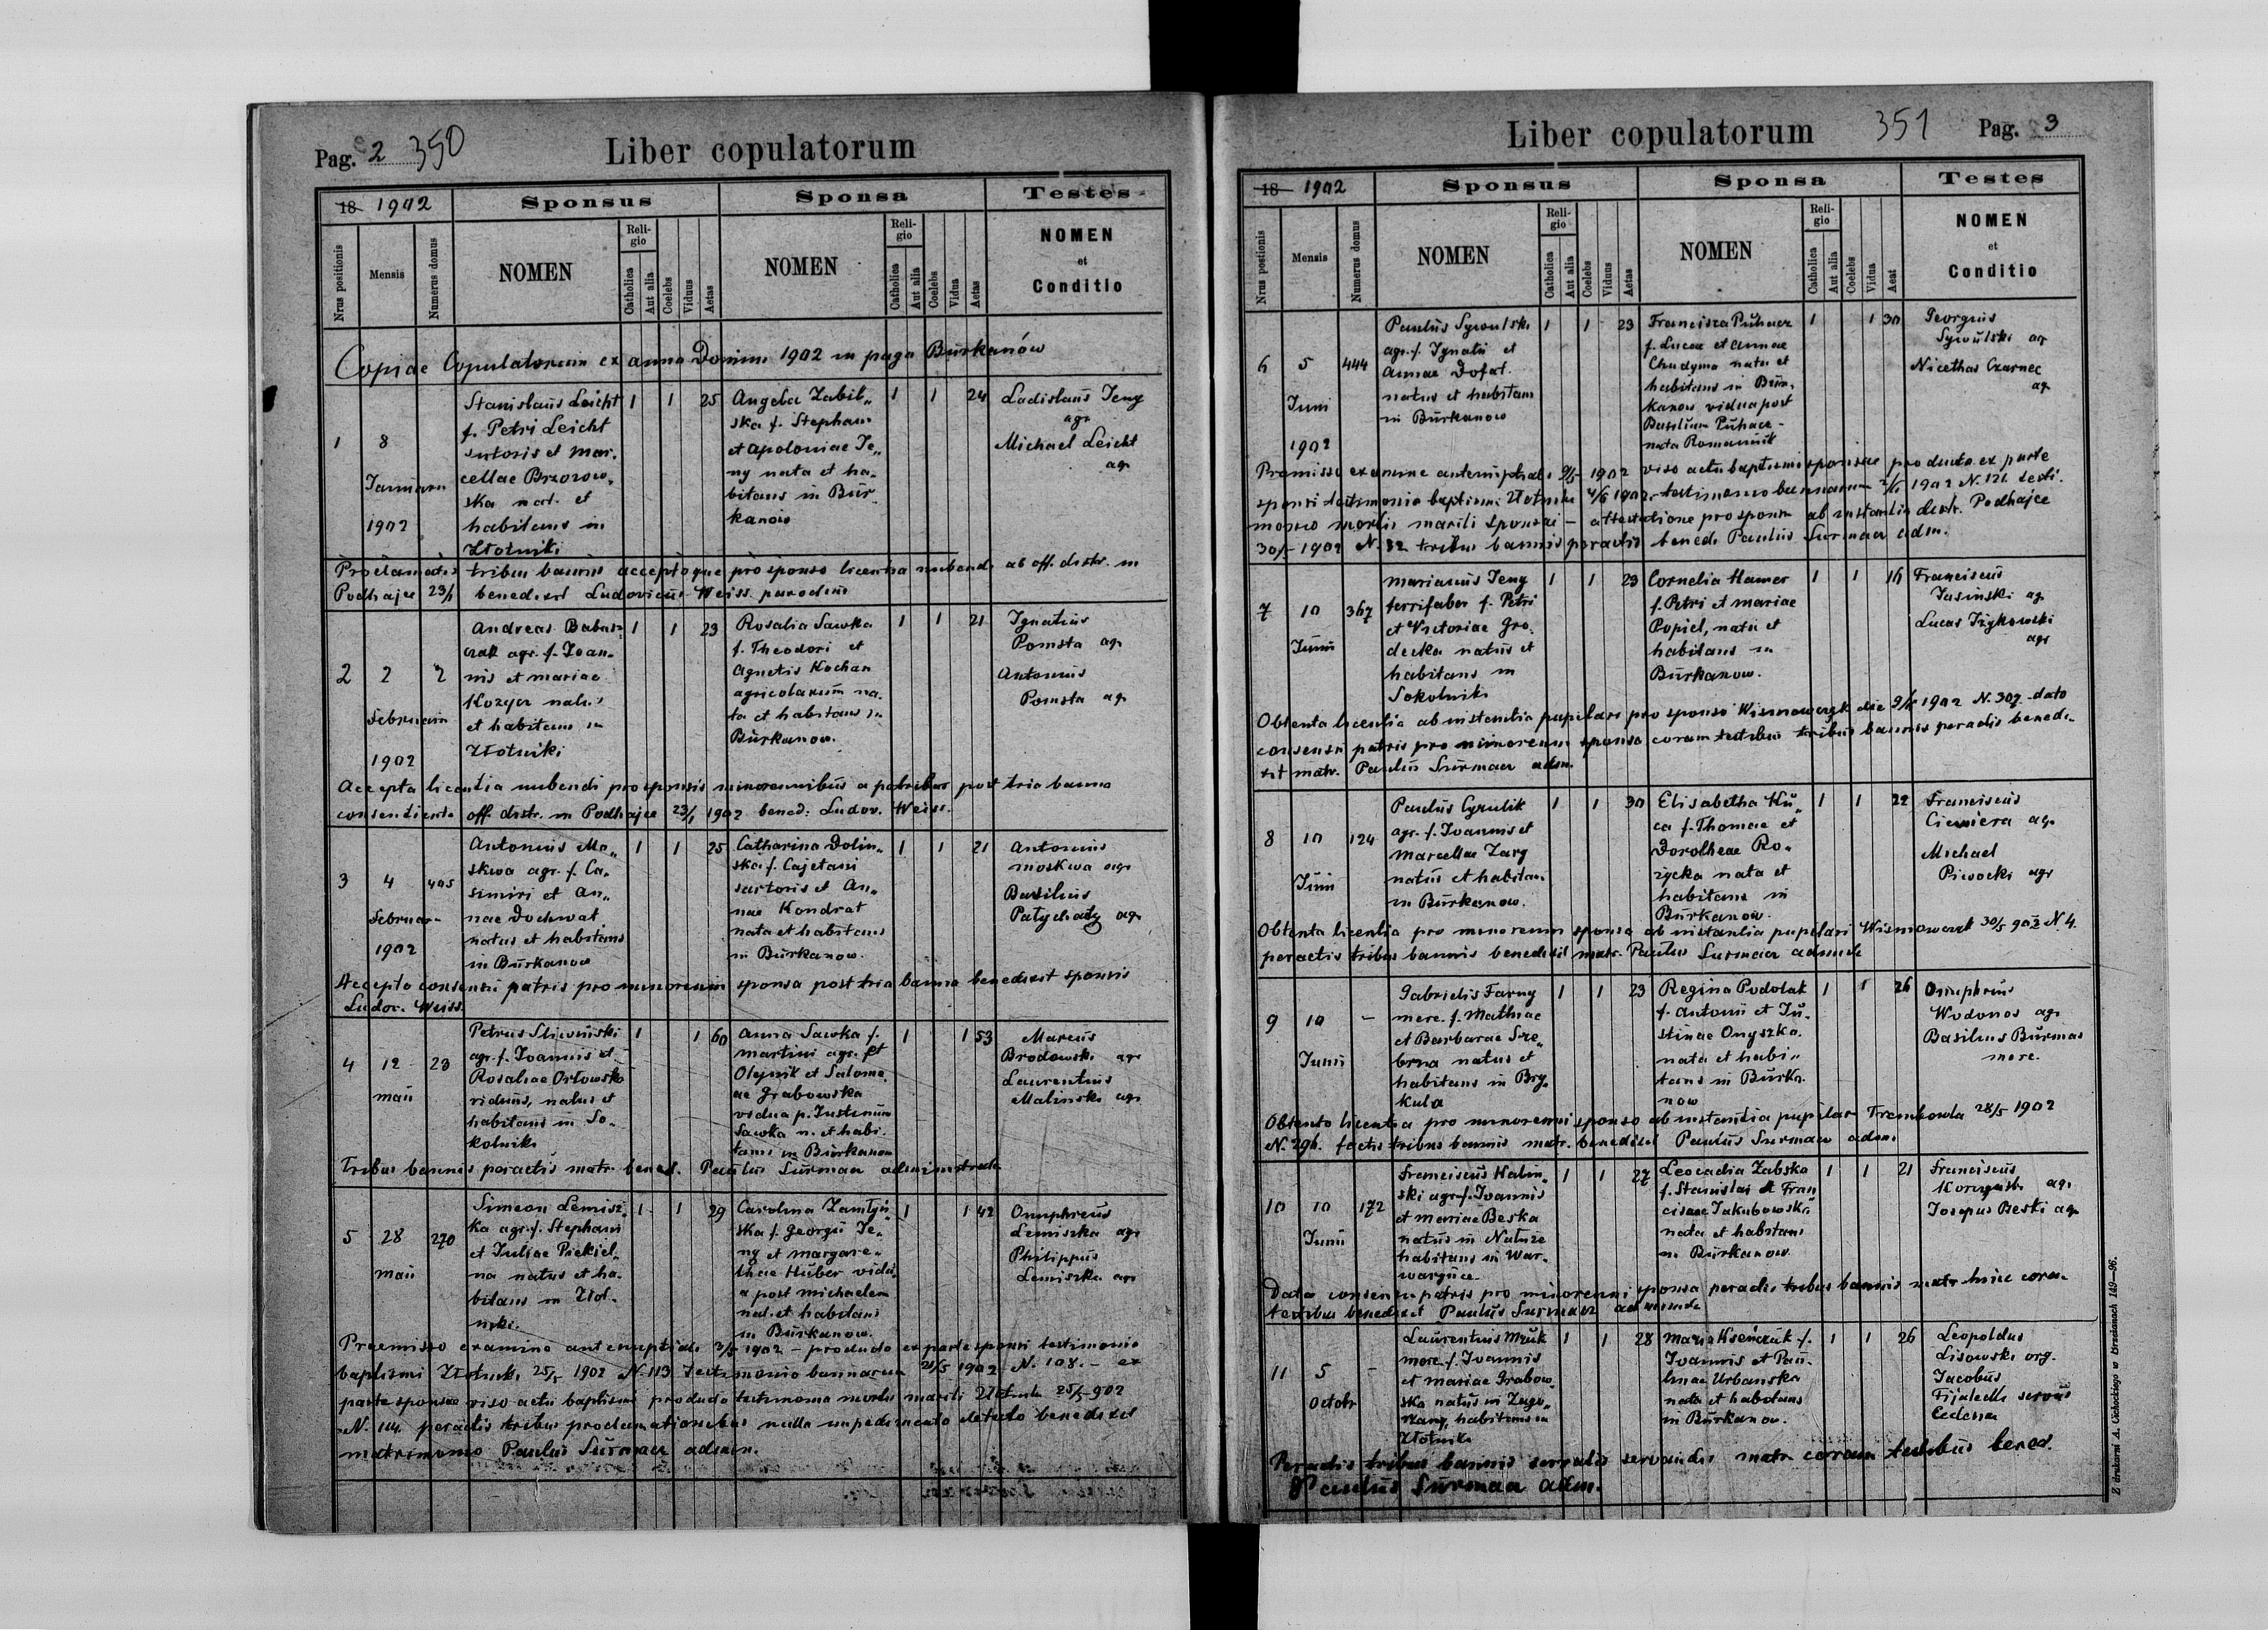 Pag. 2 350
Liber copulatorum
18 1902
Sponsus
Sponsa
Testes
Nrus positionis
Mensis
Numerus domus
NOMEN
Religio
Catholica
Aut alia
Coelebs
Viduus
Aetas
NOMEN
Religio
Catholica
Aut alia
Coelebs
Vidua
Aetas
NOMEN
et
Conditio
Copiae Copulatorum ex anno Domini 1902 in pago Burkanów
1
8
Januarii
1902
Stanislaus Leicht
f. Petri Leicht
sutoris et Mar-
cellae Brzozow-
ska nat. et
habitans in
Złotniki
1 1 25
Angela Zabil-
ska f. Stephani
et Apoloniae Je-
ny nata et ha-
bitans in Bur-
kanow
1 1 24
Ladislaus Jeny
agr.
Michael Leicht
agr.
Proclamatis tribus bannis acceptoque pro sponso licentia nubendi ab off. distr. in
Podhajce 23/1 benedixit Ludovicus Weiss parochus
2
2
Februarii
1902
2
Andreas Babusz-
czak agr. f. Joan-
nis et Mariae
Kozyra natus
et habitans in
Złotniki
1 1 23
Rosalia Sawka
f. Theodori et
Agnetis Kochan
agricolarum na-
ta et habitans in
Burkanow.
1 1 21
Ignatius
Pomsta agr.
Antonius
Pomsta agr.
Accepta licentia nubendi pro sponsis minorennibus a patribus post tria banna
consentiente off. distr. in Podhajce 23/1 1902 bened. Ludov. Weiss.
3
4
Februar-
1902
405
Antonius Mo-
skwa agr. f. Ca-
simiri et An-
nae Dochwat
natus et habitans
in Burkanow
1 1 25
Catharina Dolin-
ska f. Cajetani
sartoris et An-
nae Kondrat
nata et habitans
in Burkanow.
1 1 21
Antonius
Moskwa agr
Basilius
Patychaty agr
Accepto consensu patris pro minorenni sponsa post tria banna benedixit sponsis
Ludov. Weiss.
4
12
Maii
23
Petrus Sliwinski
agr. f. Joannis et
Rosaliae Orłowska
viduus, natus et
habitans in So-
kolniki
1 1 60
Anna Sawka f.
Martini agr.
Olejnik et Salome-
ae Grabowska
vidua p. Justinum
Sawka n. et habi-
tans in Burkanow
1 1 53
Marcus
Brodowski agr
Laurentius
Malinski agr
Tribus bannis peractis matr. bened. Paulus Surmacz administrator
5
28
Maii
270
Simeon Lemisz-
ka agr. f. Stephani
et Juliae Piekiel-
na natus et ha-
bitans in Złot-
niki.
1 1 29
Carolina
ska f. Georgii Je-
ny et Margare-
thae Huber vidu-
a post Michaelem
nat. et habitans
in Burkanow.
1 1 42
Onuphreus
Lemiszka agr
Philippus
Lemiszka agr
Praemisso examine antenuptiali 3/5 1902 – producto ex parte sponsi testimonio
baptismi Złotniki 25/5 1902 N. 113 testimonio bannorum 21/5 1902 N. 108. – ex
parte sponsae viso actu baptismi producto testimonio mortis mariti Złotniki 25/5 902
N. 114. peractis tribus proclamationibus nullo impedimento detecto benedixit
matrimonio Paulus Surmacz admin.
Liber copulatorum
351 Pag. 3
18 1902
Sponsus
Sponsa
Testes
Nrus postionis
Mensis
Numerus domus
NOMEN
Religio
Catholica
Aut alia
Coelebs
Viduus
Aetas
NOMEN
Religio
Catholica
Aut alia
Coelebs
Vidua
Aeat
NOMEN
et
Conditio
6
5
Juni
1902
444
Paulus Sywulski
agr. f. Ignatii et
Annae Dofat.
natus et habitans
in Burkanow
1 1 23
Francisca Puhacz
f. Lucae et Annae
Chudyma nata et
habitans in Bur-
kanow vidua post
Basilium Puhacz -
nata Romaniuk
1 1 30
Georgius
Sywulski agr
Nicethas Czarnec
agr
Premisso examine antenuptiali 9/5 1902 viso actu baptismi sponsae producto ex parte
sponsi testimonio baptismi Złotniki 4/6 1902, testimonio bannorum 1902 N. 121. testi-
monio mortis mariti sponsae – attestatione pro sponso ab instantia distr. Podhajce
30/5 1902 N. 32 tribus bannis peractis bened. Paulus Surmacz adm.
7
10
Junii
367
Marianus Jeny
ferrifaber f. Petri
et Victoriae Gro-
decka natus et
habitans in
Sokolniki
1 1 23
Cornelia Hamer
f. Petri et Mariae
Popiel, nata et
habitans in
Burkanow.
1 1 16
Franciscus
Jasinski agr
Lucas Jżykowski
agr
Obtenta licentia ab instantia pupilari pro sponso Wisniowczyk die 9/6 1902 N. 307. dato
consensu patris pro minorenni sponsa coram testibus tribus bannis peractis benedi-
xit matr. Paulus Surmacz adm.
8
10
Junii
124
Paulus Cyrulik
agr. f. Joannis et
Marcellae Zary
natus et habitans
in Burkanow.
1 1 30
Elisabetha Ku-
ca f. Thomae et
Dorotheae Ro-
zycka nata et
habitans in
Burkanow.
1 1 22
Franciscus
Ciemiera agr.
Michael
Piwocki agr
Obtenta licentia pro minorenni sponsa ab instantia pupilari Wisniowczyk 30/5 902 N 4.
peractis tribus bannis benedixit matr. Paulus Surmacz
9
10
Junii
–
Gabrielis Farny
merc. f. Mathiae
et Barbarae Sre-
brna natus et
habitans in Bry-
kula
1 1 23
Regina Podolak
f. Antonii et Ju-
stinae Onyszko.
nata et habi-
tans in Burka-
now
1 1 26
Onuphrius
Wodonos agr
Basilius Burmas
merc.
Obtento licentia pro minorenni sponso ab instantia pupilari Trembowla 28/5 1902
N. 296. factis tribus bannis matr. benedixit Paulus Surmacz adm.
10
10
Junii
172
Franciscus Kalin-
ski agr. f. Joannis
et Mariae Beska
natus in Natuze
habitans in War-
warynce.
1 1 27
Leocadia Zabska
f. Stanislai et Fran-
ciscae Jakubowska
nata et habitans
in Burkanow.
1 1 21
Franciscus
agr.
Josepus Beski agr
Dato consensu patris pro minorenni sponsa peractis tribus bannis matr. huic coram
testibus benedixit Paulus Surmacz
11
5
Octobr
–
Laurentius Mruk
merc. f. Joannis
et Mariae Grabow-
ska natus in
habitans in
Złotniki
1 1 28
Maria Kseńczuk f.
Joannis et Pau-
linae Urbanska
nata et habitans
in Burkanow.
1 1 26
Leopoldus
Lisowski org.
Jacobus
Fijałecki servus
Peractis tribus bannis servatis servandis matr. coram testibus bened.
Paulus Surmacz adm.
Z drukarni A. Cichockiego w Brzeżanach 149–96.